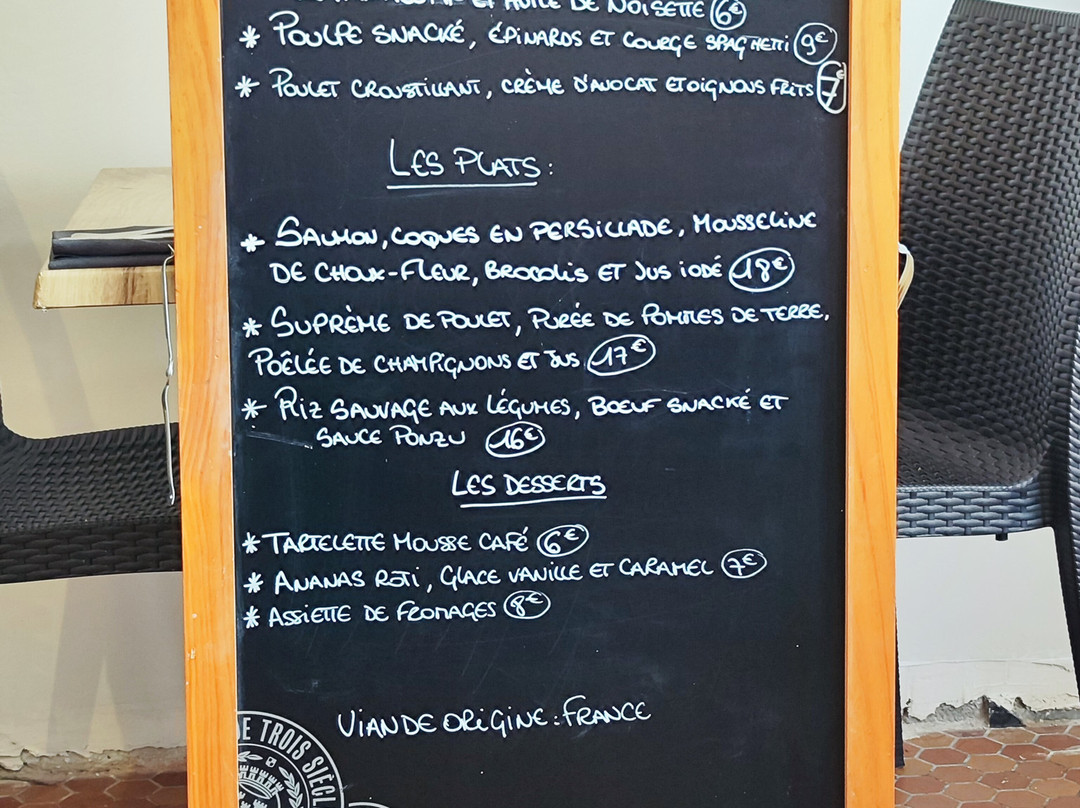 ET HUILE DE NOISETTE 6€
* POULPE SNACKÉ, ÉPINARDS ET COURGE SPAGHETTI 9€
* POULET CROUSTILLANT, CRÈME D'AVOCAT ET OIGNONS FRITS 7€
LES PLATS :
* SAUMON, COQUES EN PERSILLADE, MOUSSELINE
DE CHOUX-FLEUR, BROCOLIS ET JUS IODÉ 18€
* SUPRÈME DE POULET, PURÉE DE POMMES DE TERRE,
POÊLÉE DE CHAMPIGNONS ET JUS 17€
* RIZ SAUVAGE AUX LÉGUMES, BOEUF SNACKÉ ET
SAUCE PONZU 16€
LES DESSERTS
* TARTELETTE MOUSSE CAFÉ 6€
* ANANAS ROTI, GLACE VANILLE ET CARAMEL 7€
* ASSIETTE DE FROMAGES 8€
VIANDE ORIGINE : FRANCE
E TROIS SIÈCL